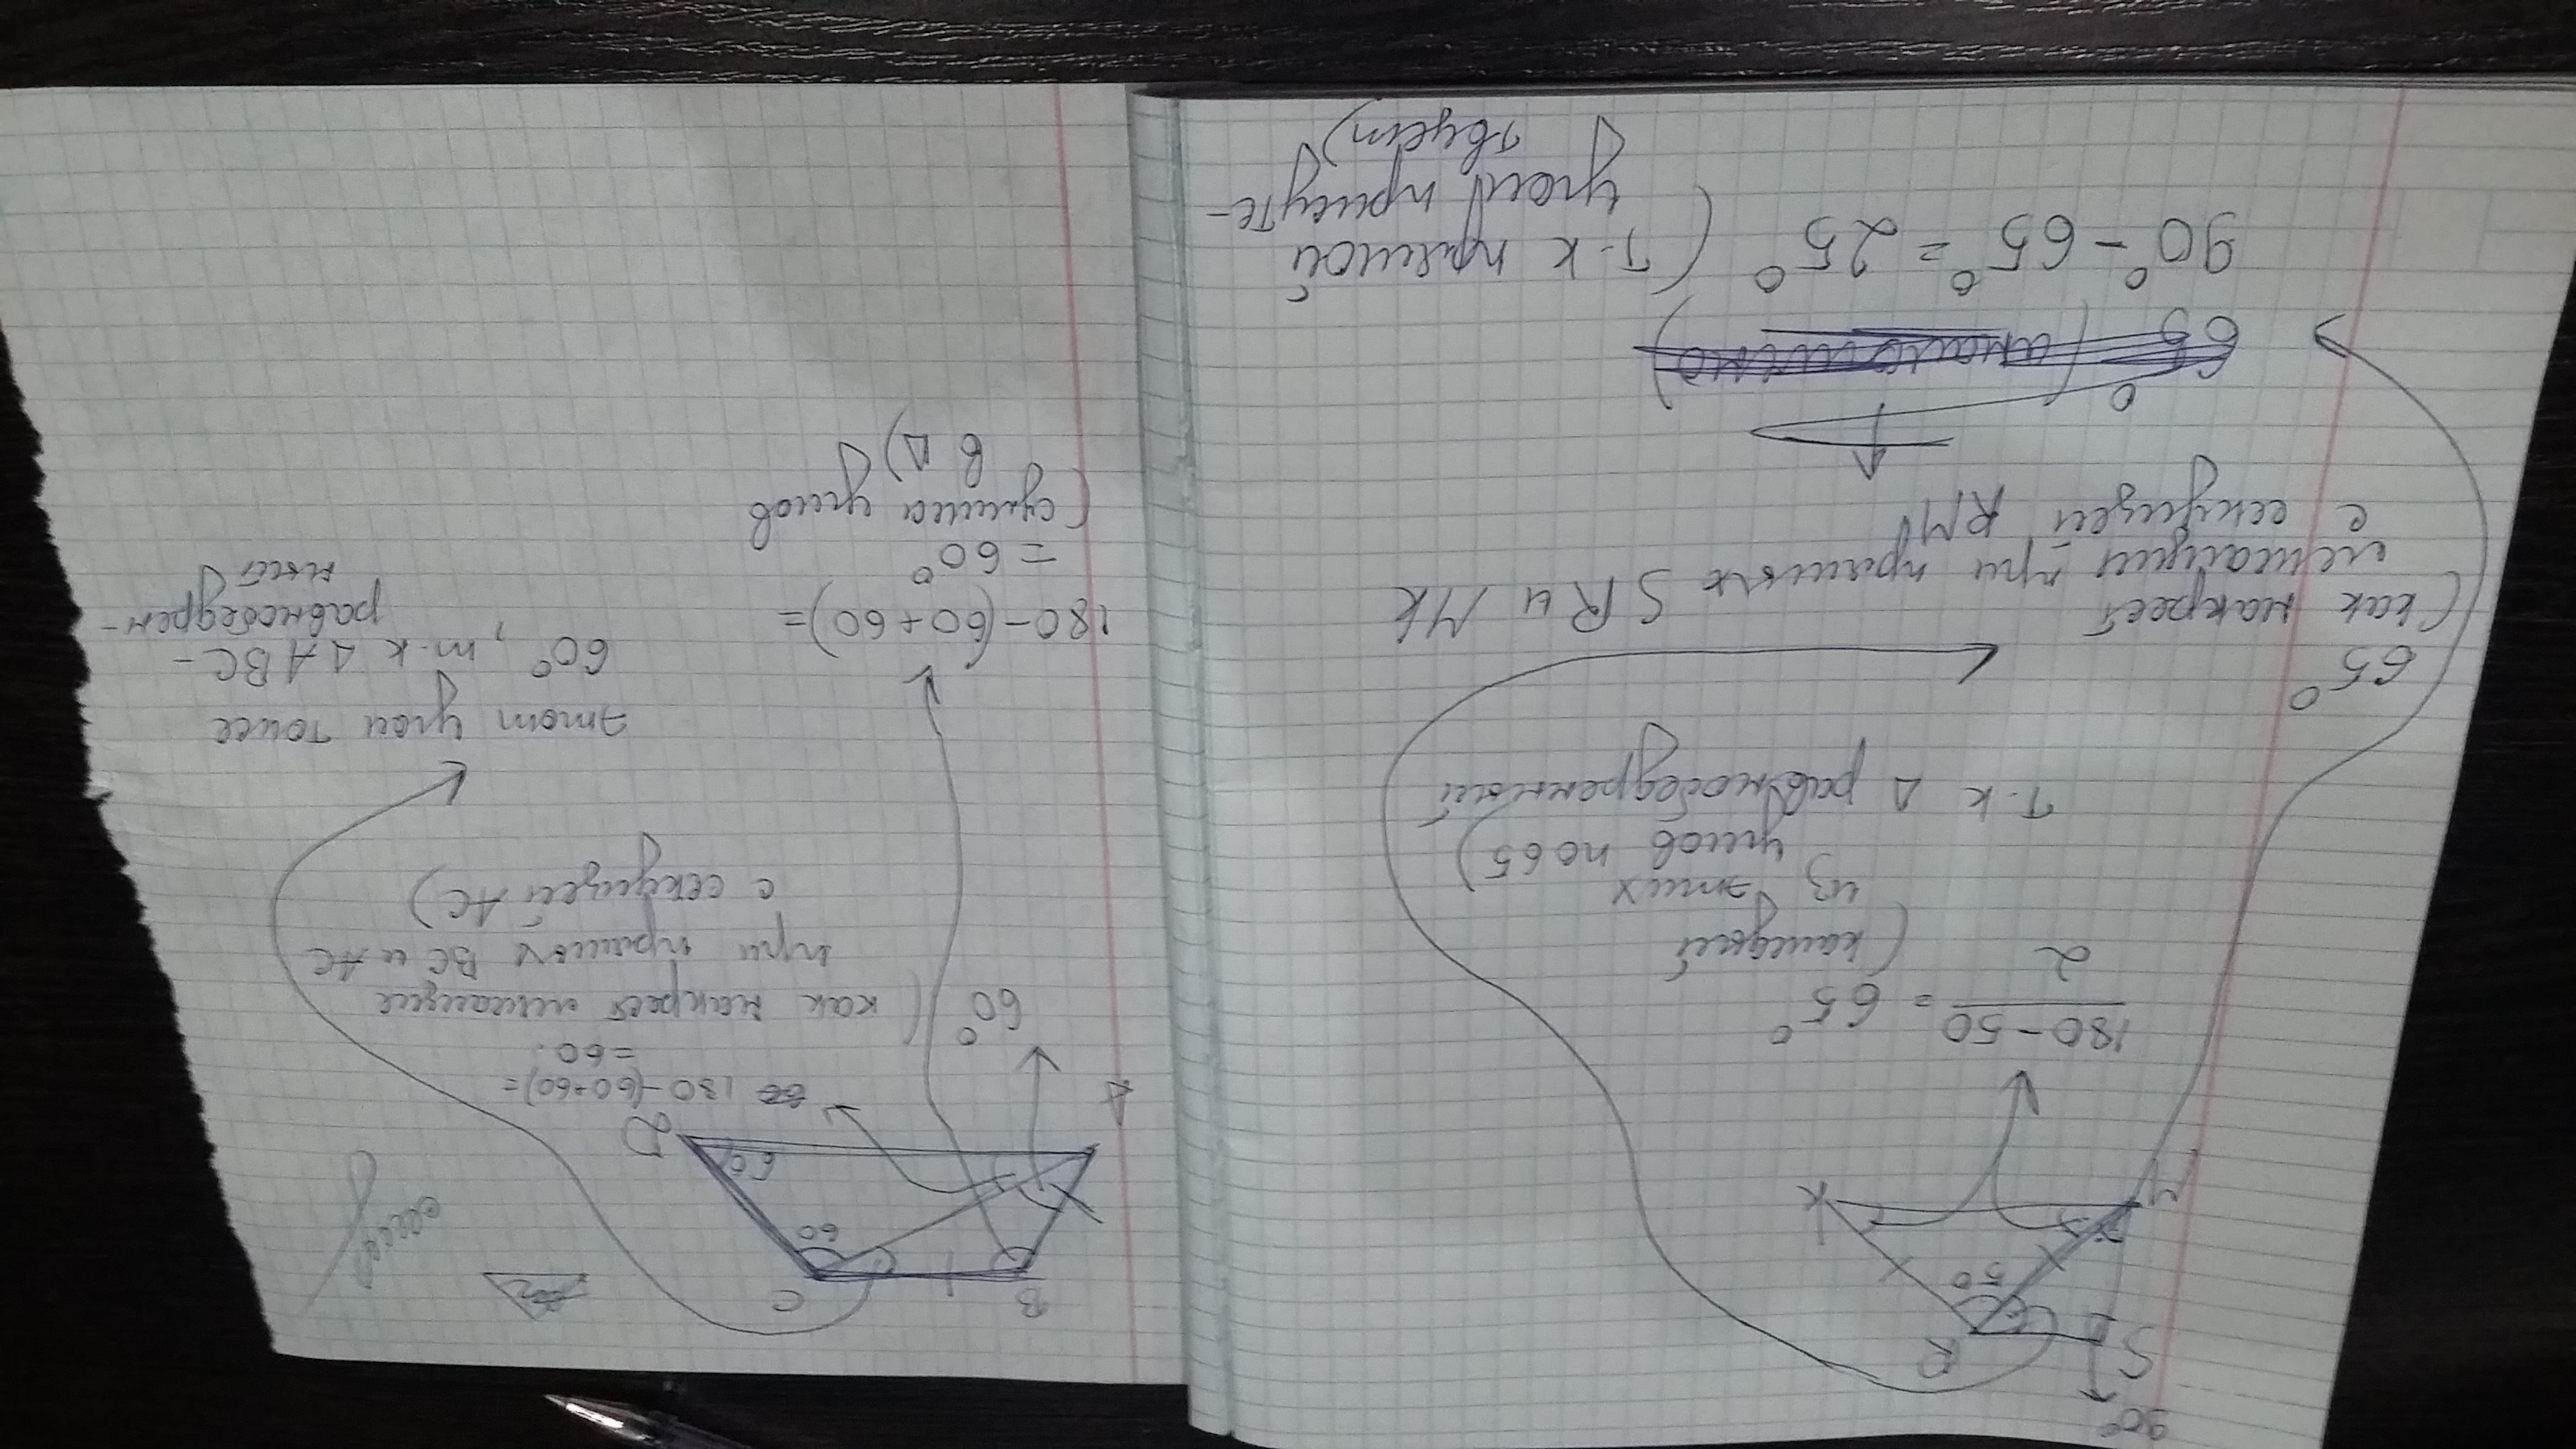 90°
S
R
50
M
K
180-50
——— = 65°
2
(каждый
из этих
углов по 65)
т.к Δ равнобедренный
65°
(как накрест
лежащий при прямых SR и MK
с секущей RM)
65° (аналогично)
90° - 65° = 25° (т.к прямой
угол присутс-
твует)
B
C
60
60
A
D
180-(60+60)=
=60.
60° (как накрест лежащие
при прямых BC и AC
с секущей AC)
этот угол тоже
60°, т.к Δ ABC -
равнобедрен-
ный
180-(60+60)=
=60°
(сумма углов
в Δ)